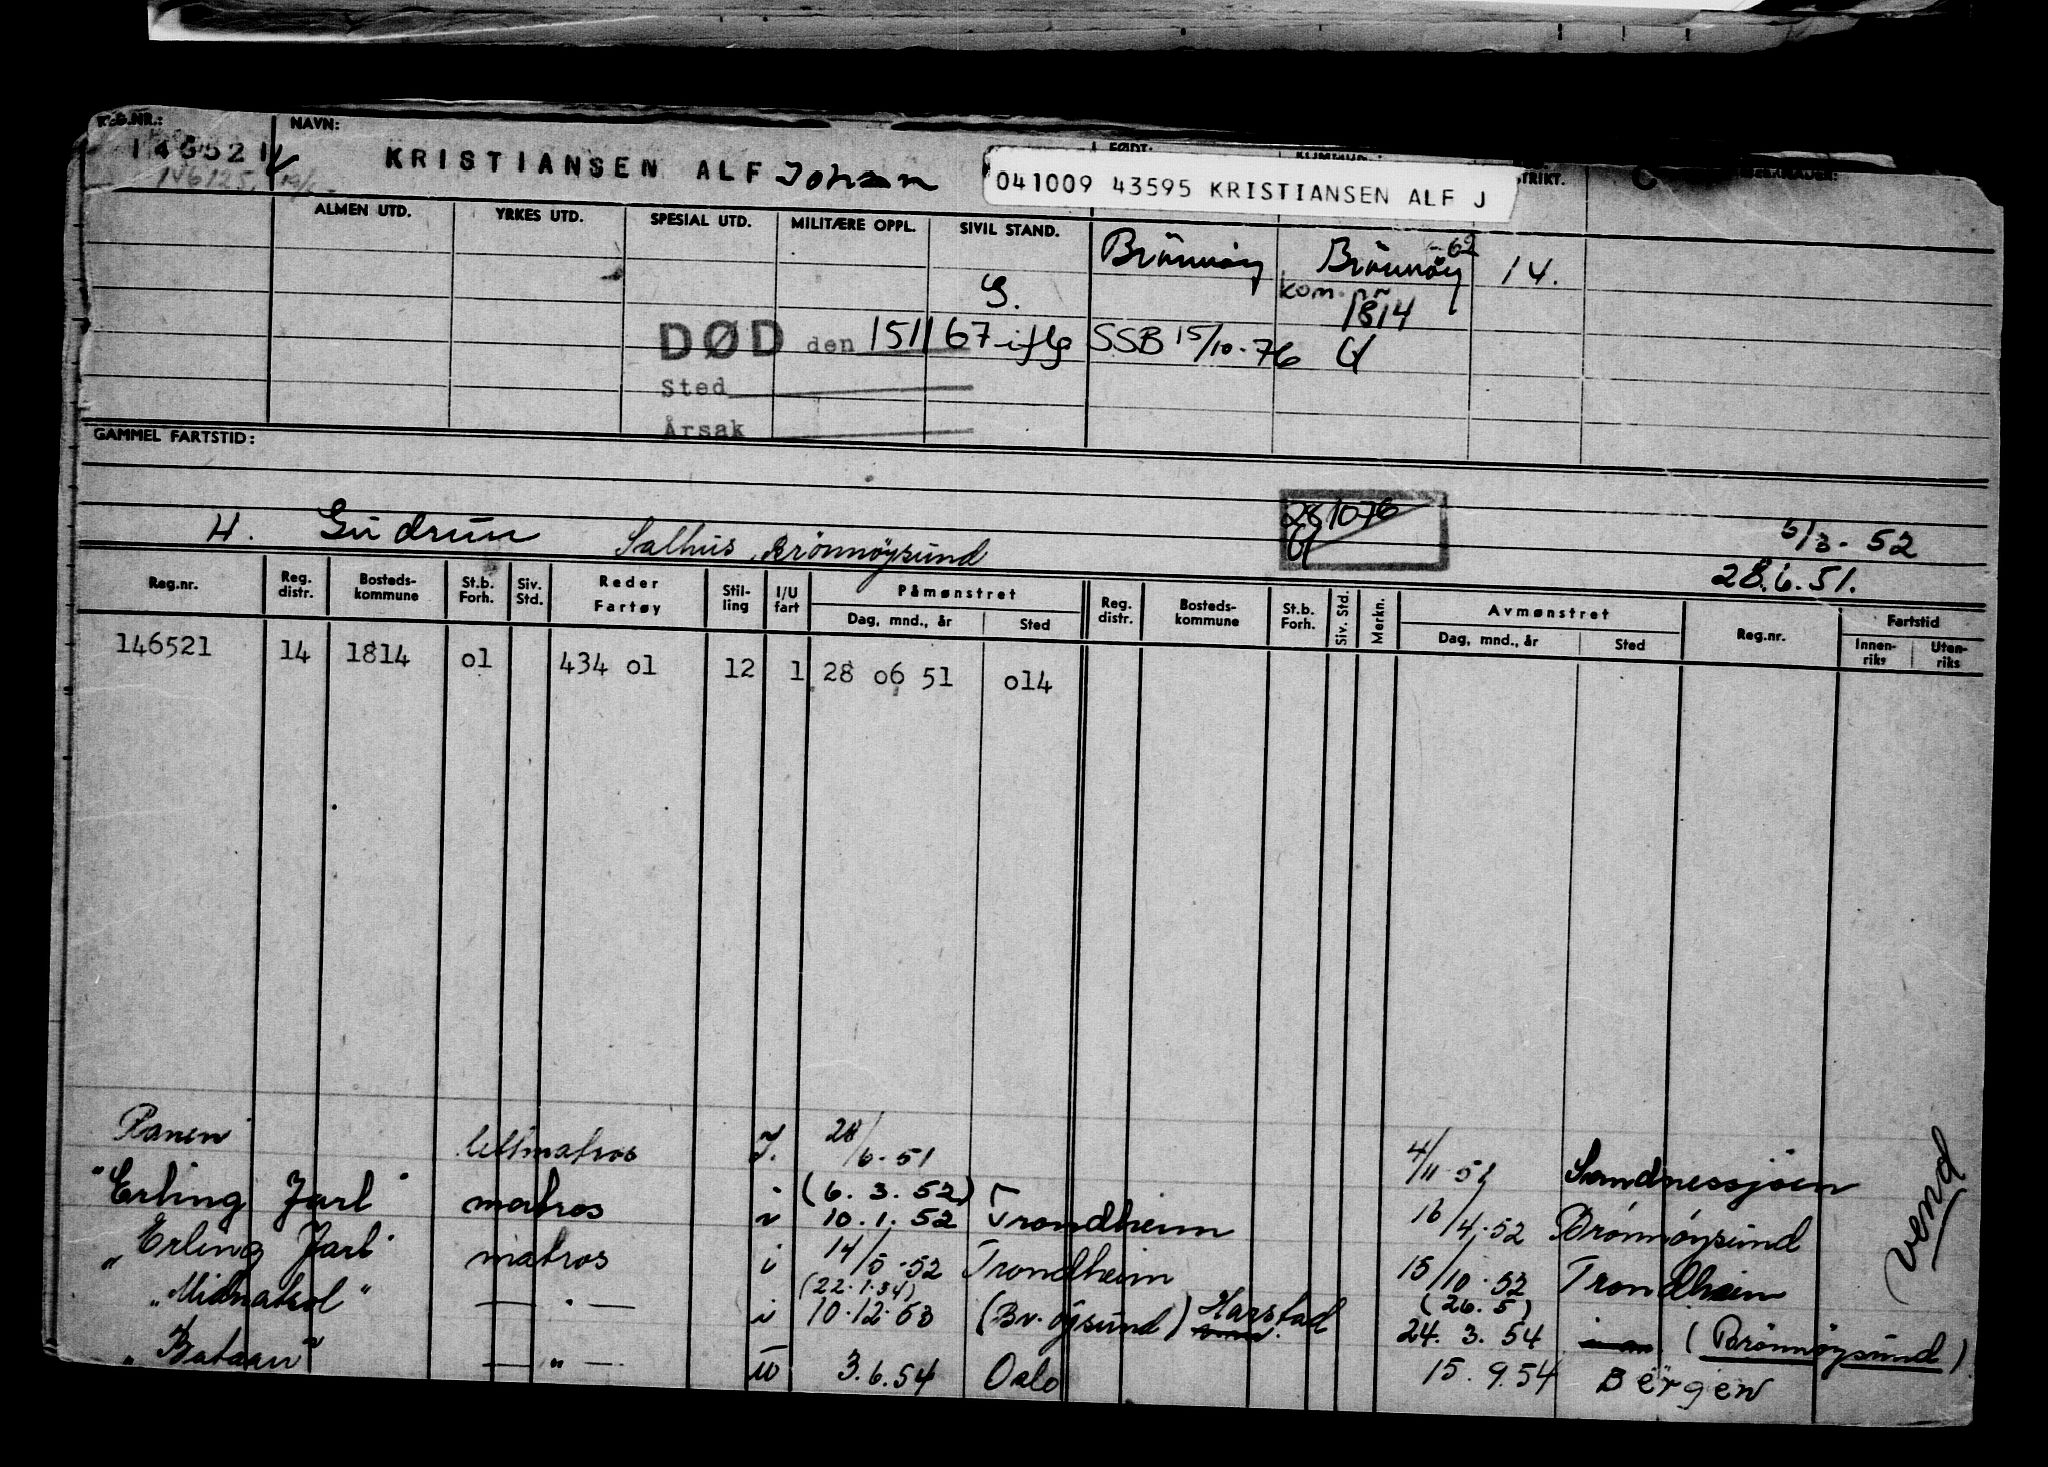 REG.NR.: NAVN: FØDT:
146521 KRISTIANSEN ALF Johan
146125
041009 43595 KRISTIANSEN ALF J
ALMEN UTD. YRKES UTD. SPESIAL UTD. MILITÆRE OPPL. SIVIL STAND.
Brönnöy Brönnöy -62 14.
G. kom. nr 1814
DØD den 151167 iflg SSB 15/10-76
Sted
Årsak
GAMMEL FARTSTID:
281076
H. Gudrun Salhus, Brönnöysund 5/3-52
28.6.51.
Reg.nr. Reg. distr. Bosteds-kommune St.b. Forh. Siv. Std. Reder Fartøy Stil-ling I/U fart Påmønstret Dag, mnd., år Sted Reg. distr. Bosteds-kommune St.b. Forh. Siv. Std. Merkn. Avmønstret Dag, mnd., år Sted Reg.nr. Fartstid Innen-riks Uten-riks
146521 14 1814 o1 434 o1 12 1 28 o6 51 o14
Ranen lettmatros I. 28/6-51 4/11 51 Sandnessjøen
"Erling Jarl" matros i (6.3.52) 10.1.52 Trondheim 16/4.52 Brönnöysund
"Erling Jarl" matros i 14/5.52 Trondheim 15/10.52 Trondheim
"Midnatsol" — " — i (22.1.54) 10.12.53 (Br.öysund) Harstad (26.5) 24.3.54 (Brönnöysund)
"Bataan" — " — u 3.6.54 Oslo 15.9.54 Bergen
vend